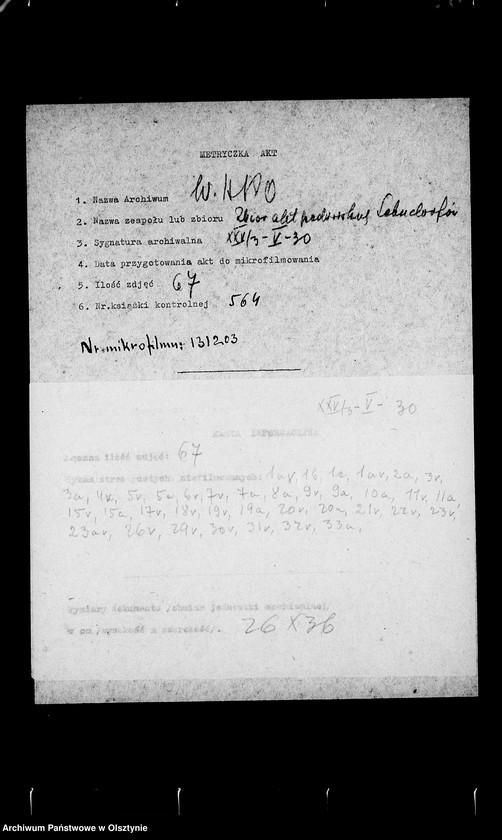 METRYCZKA AKT
1. Nazwa Archiwum W.A.P.O
2. Nazwa zespołu lub zbioru Zbiór akt
3. Sygnatura archiwalna XXV/3-V-30
4. Data przygotowania akt do mikrofilmowania
5. Ilość zdjęć 67
6. Nr.książki kontrolnej 564
Nr. mikrofilmu: 131203
XXV/3-V- 30
KARTA INFORMACYJNA
Łączna ilość zdjęć: 67
1av, 1b, 1c, 1av, 2a, 3v,
3a, 4v, 5v, 5a, 6v, 7v, 7a, 8a, 9v, 9a, 10a, 11v, 11a
15v, 15a, 17v, 18v, 19v, 19a, 20v, 20a, 21v, 22v, 23v,
23av, 26v, 29v, 30v, 31v, 32v, 33a,
Wymiary dokumentu /obwian jednostki archiwalnej,
w cm /wysokość x szerokość/. 26 X 36
Archiwum Państwowe w Olsztynie